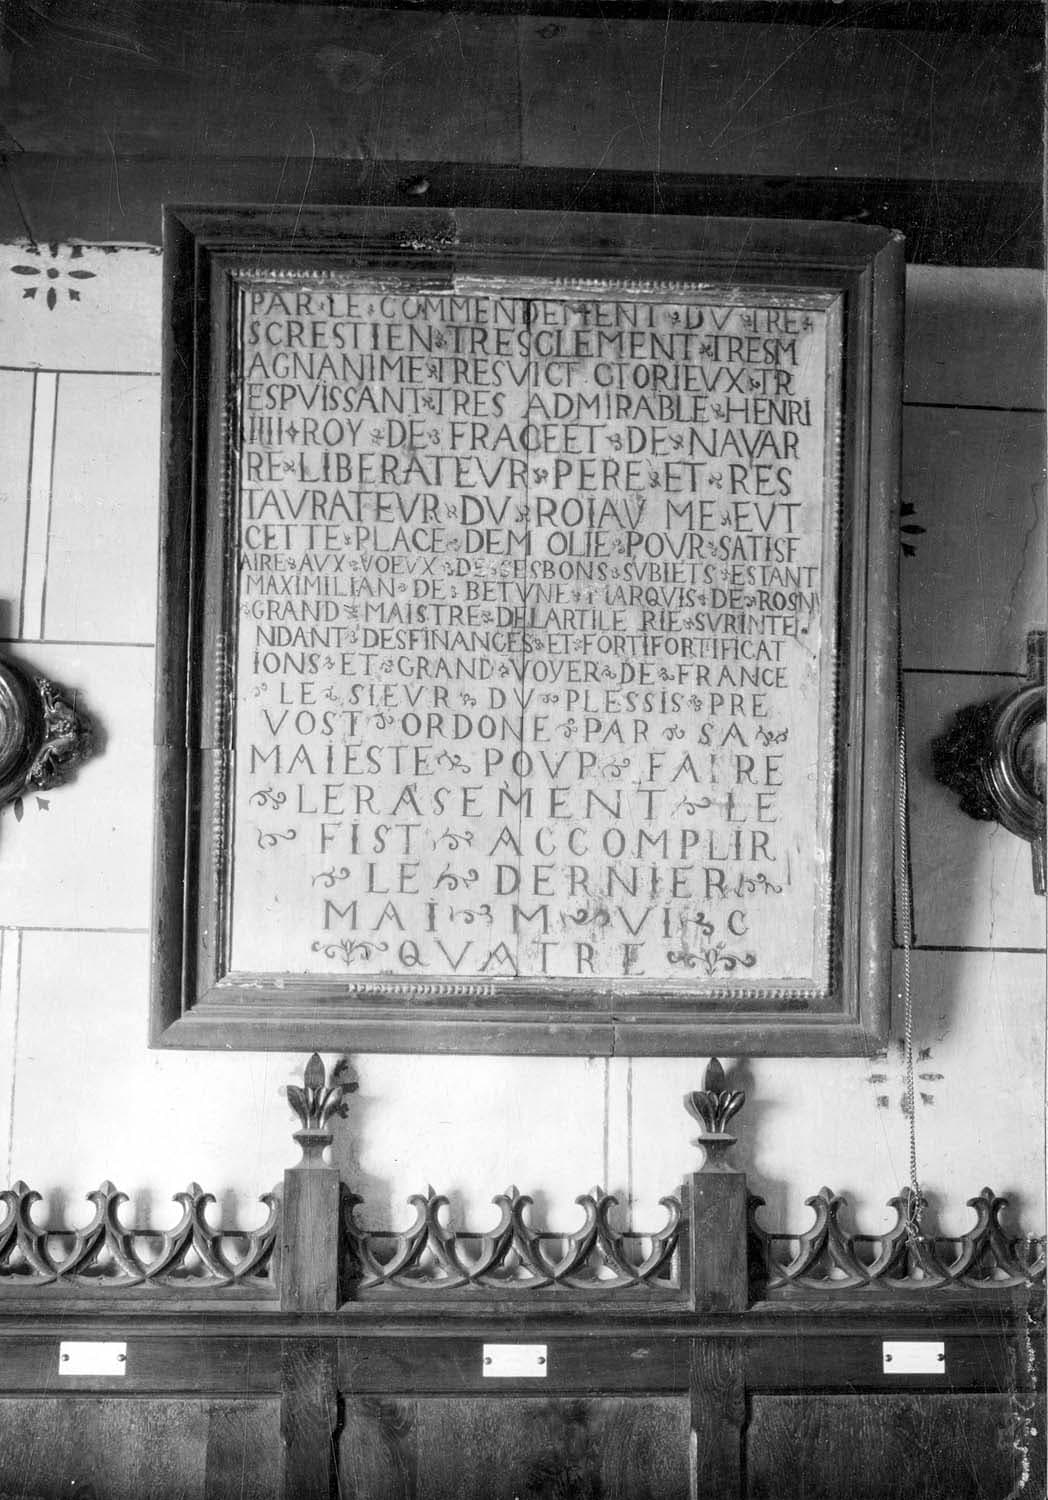 PAR LE COMMENDEMENT DU TRE
SCRESTIEN TRESCLEMENT TRESM
AGNANIME TRESVICT CTORIEVX TR
ESPVISSANT TRES ADMIRABLE HENRI
IIII ROY DE FRACEET DE NAVAR
RE LIBERATEVR PERE ET RES
TAVRATEVR DV ROIAV ME EVT
CETTE PLACE DEM OLIE POVR SATISF
AIRE AVX VOEVX DE SESBONS SVBIETS ESTANT
MAXIMILIAN DE BETVNE MARQVIS DE ROSNI
GRAND MAISTRE DELARTILE RIE SVRINTE
NDANT DESFINANCES ET FORTIFORTIFICAT
IONS ET GRAND VOYER DE FRANCE
LE SIEVR DV PLESSIS PRE
VOST ORDONE PAR SA
MAIESTE POVR FAIRE
LERASEMENT LE
FIST ACCOMPLIR
LE DERNIER
MAI M VI C
QVATRE